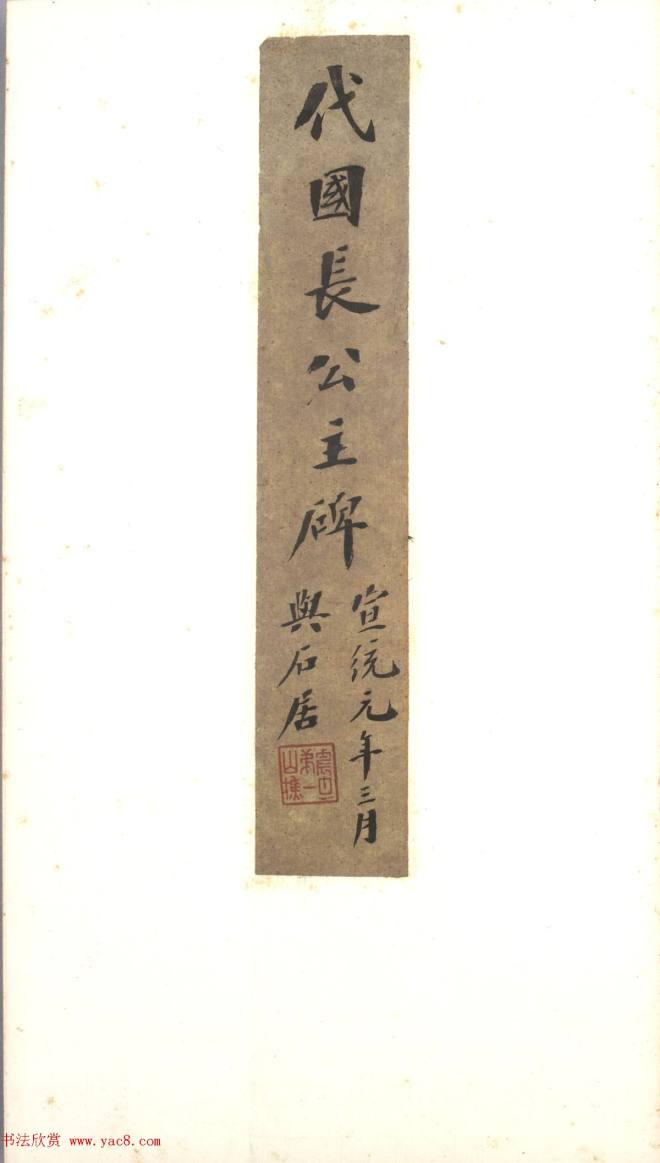 代國長公主碑
宣統元年三月
與石居
书法欣赏 www.yac8.com